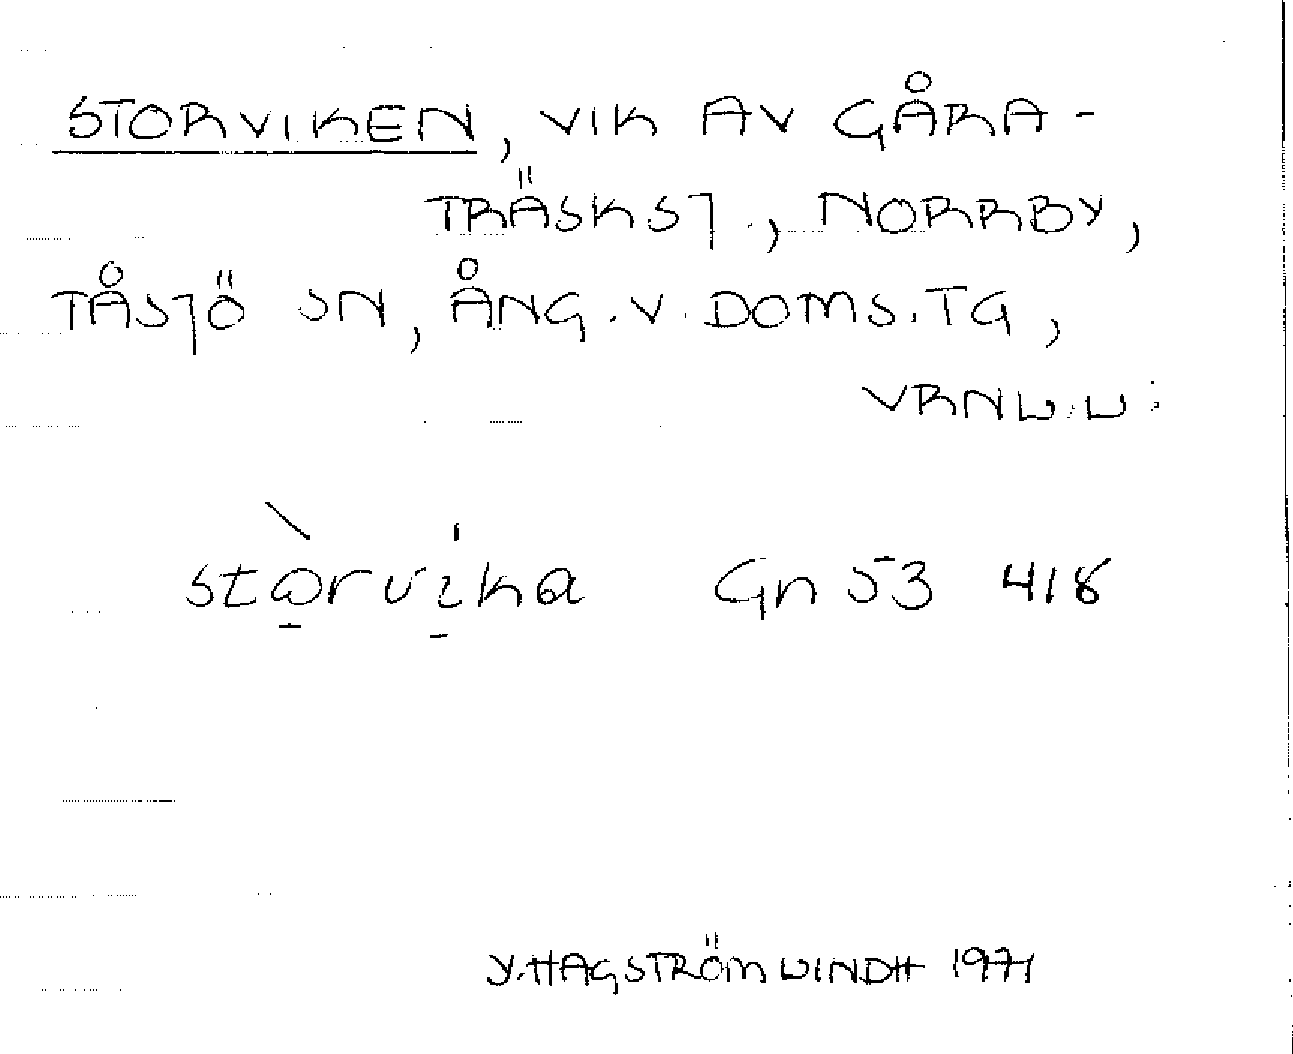 STORVIKEN, VIK AV GÅRA-
TRÄSKSJ., NORRBY,
TÅSJÖ SN, ÅNG.V.DOMS.TG,
VRNL.L:
stòrvika Gn 53 418
Y.HAGSTRÖM WINDH 1971